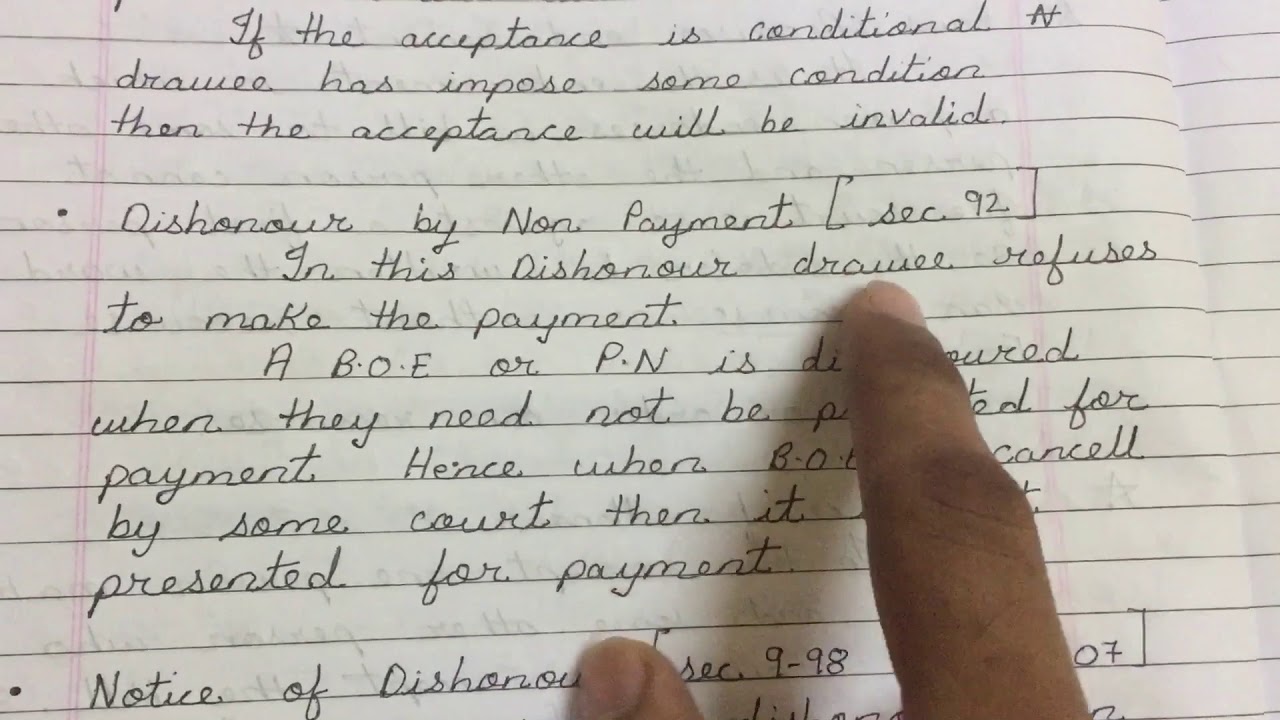 If the acceptance is conditional
drawee has impose some condition
then the acceptance will be invalid.
• Dishonour by Non Payment [sec. 92]
In this Dishonour drawee refuses
to make the payment.
A B.O.E or P.N is
when they need not be for
payment. Hence when cancell
by some court then it
presented for payment.
• Notice of [sec. 9-98 07]